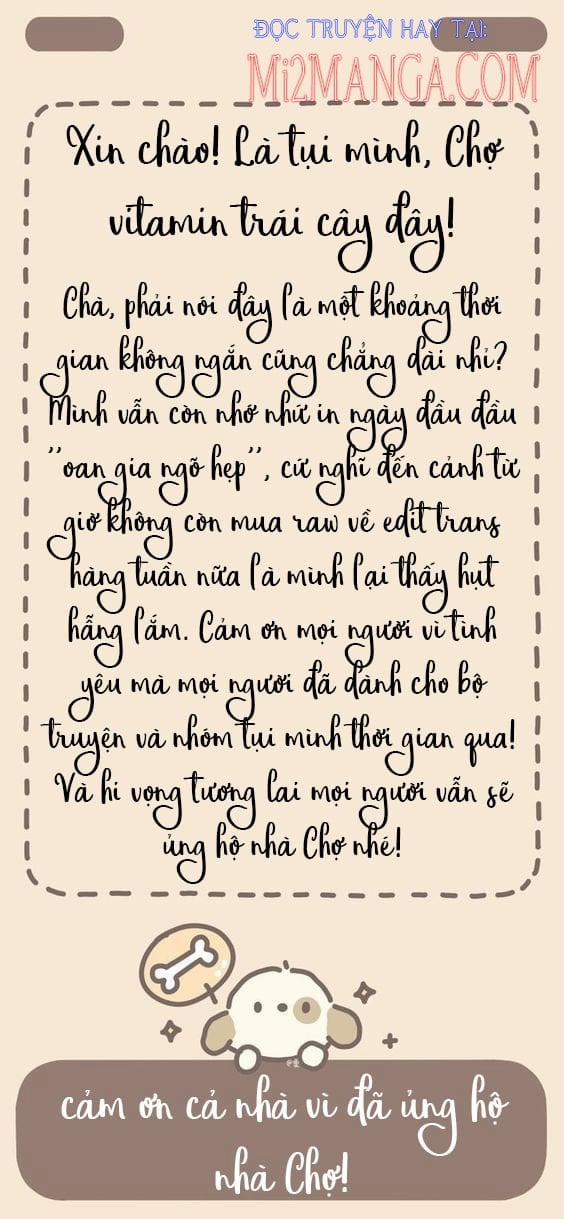 ĐỌC TRUYỆN HAY TẠI:
MI2MANGA.COM
Xin chào! Là tụi mình, Chợ
vitamin trái cây đây!
Chà, phải nói đây là một khoảng thời
gian không ngắn cũng chẳng dài nhỉ?
Mình vẫn còn nhớ như in ngày đầu đầu
"oan gia ngõ hẹp", cứ nghĩ đến cảnh từ
giờ không còn mua raw về edit trans
hàng tuần nữa là mình lại thấy hụt
hẫng lắm. Cảm ơn mọi người vì tình
yêu mà mọi người đã dành cho bộ
truyện và nhóm tụi mình thời gian qua!
Và hi vọng tương lai mọi người vẫn sẽ
ủng hộ nhà Chợ nhé!
cảm ơn cả nhà vì đã ủng hộ
nhà Chợ!